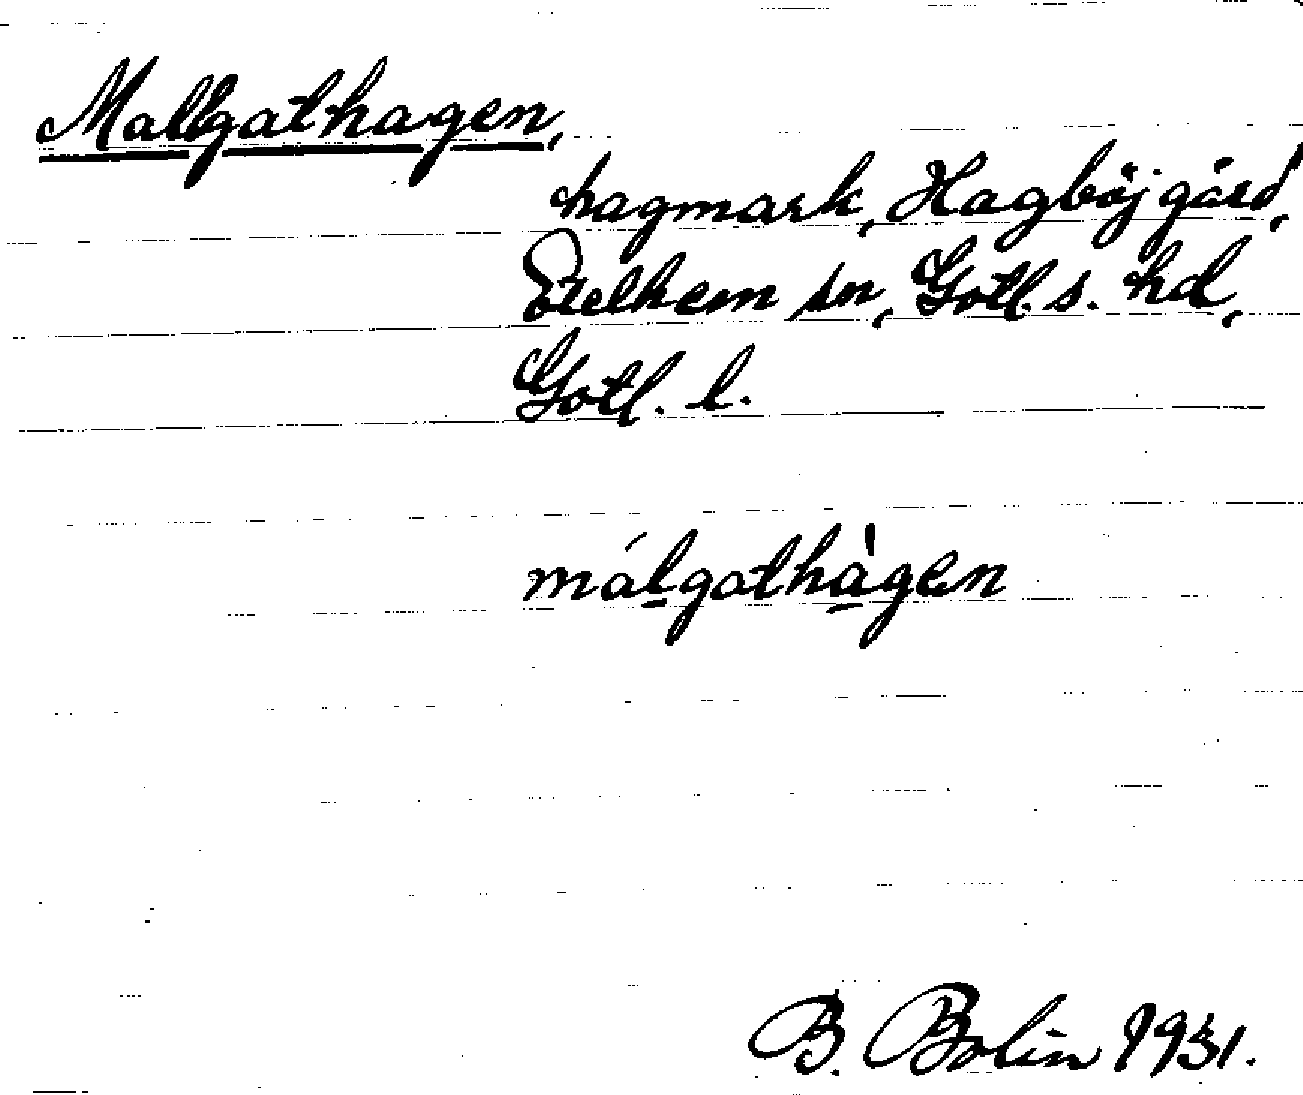 Mallgathagen,
hagmark, Hagböj gård,
Etelhem sn, Gotl. s. hd,
Gotl. l.
málgathàgen
B. Bolin 1931.